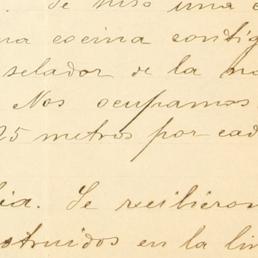 Se hizo una c
na cocina contig
selador de la no
Nos ocupamos
25 metros por cad
ia. Se recibieron
struidos en la lin